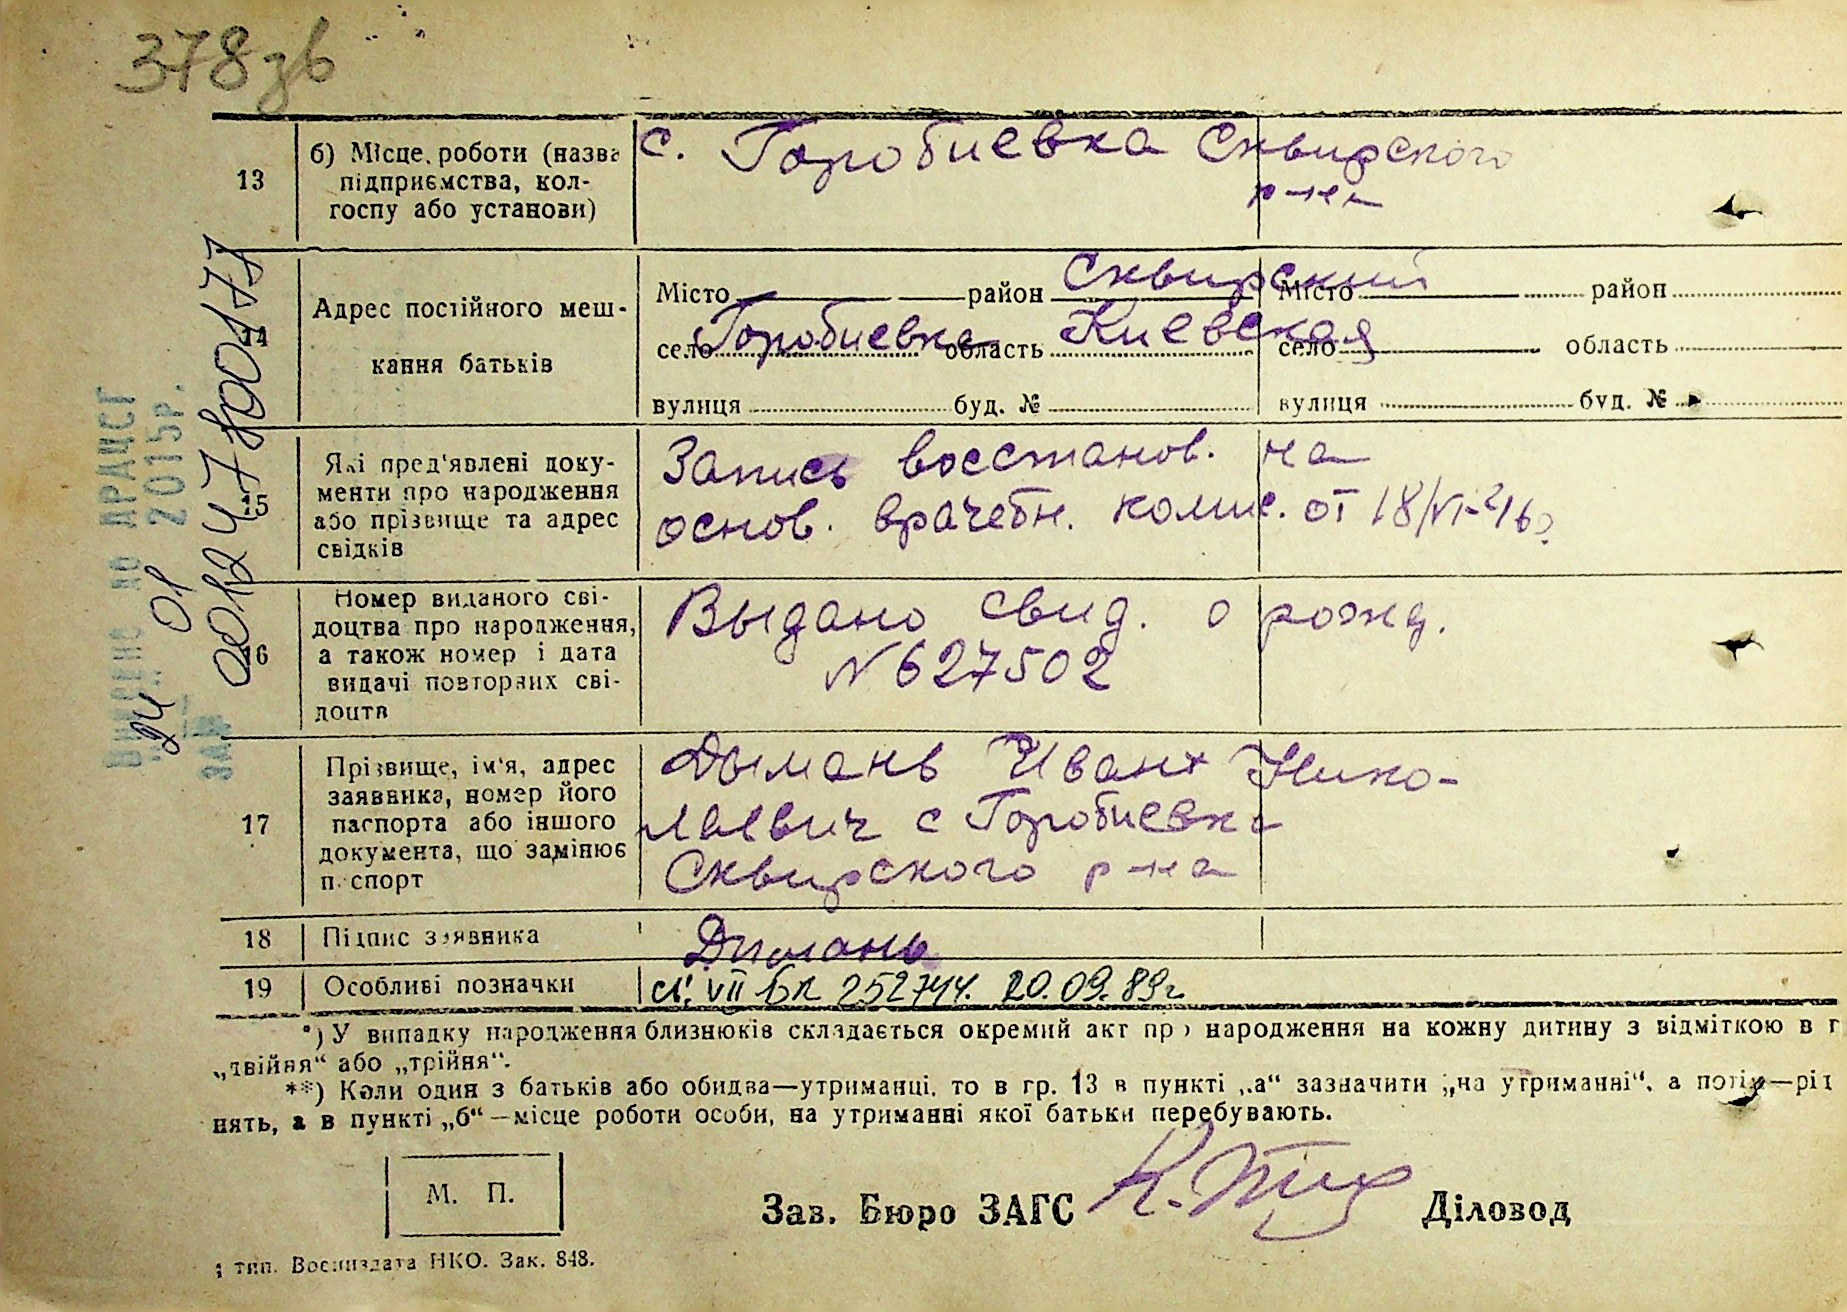 378зв
13
б) Місце роботи (назва
підприємства, кол-
госпу або установи)
с. Горобиевка Сквирского
р-на
14
Адрес постійного меш-
кання батьків
Місто район Сквирский
село Горобиевка область Киевская
вулиця буд. №
Місто район
село область
вулиця буд. №
15
Які пред'явлені доку-
менти про народження
або прізвище та адрес
свідків
Запись восстанов. на
основ. врачебн. комис. от 18/VI-
16
Номер виданого сві-
доцтва про народження,
а також номер і дата
видачі повторних сві-
доцтв
Выдано свид. о рожд.
№ 627502
17
Прізвище, ім'я, адрес
заявника, номер його
паспорта або іншого
документа, що замінює
паспорт
Дымань Иван Нико-
лаевич с Горобиевка
Сквирского р-на
18 Підпис заявника
Димань
19 Особливі позначки
VII БК 252744. 20.09.89г
*) У випадку народження близнюків складається окремий акт про народження на кожну дитину з відміткою в г
„двійня“ або „трійня“.
**) Коли один з батьків або обидва—утриманці, то в гр. 13 в пункті „а“ зазначити „на утриманні“, а потім—рід
нять, а в пункті „б“—місце роботи особи, на утриманні якої батьки перебувають.
М. П.
Зав. Бюро ЗАГС
Діловод
тип. Воениздата НКО. Зак. 848.
ВНЕСЕНО ДО ДРАЦСГ
24 01 2015р.
ЗА №
00124780017